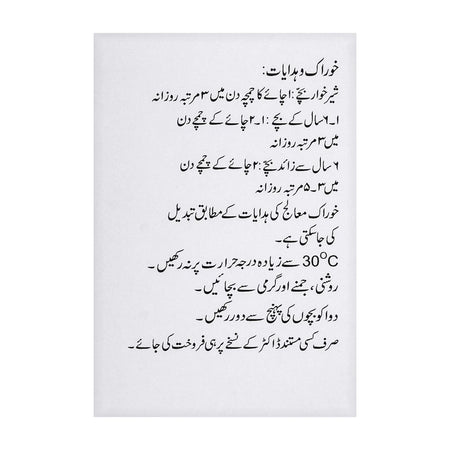 خوراک و ہدایات:
شیر خوار بچے: ۱ چائے کا چمچہ دن میں ۳ مرتبہ روزانہ
۱۔۶ سال کے بچے: ۱۔۲ چائے کے چمچے دن
میں ۳ مرتبہ روزانہ
۶ سال سے زائد بچے: ۲ چائے کے چمچے دن
میں ۳۔۵ مرتبہ روزانہ
خوراک معالج کی ہدایات کے مطابق تبدیل
کی جاسکتی ہے۔
30°C سے زیادہ درجہ حرارت پر نہ رکھیں۔
روشنی، جمنے اور گرمی سے بچائیں۔
دوا کو بچوں کی پہنچ سے دور رکھیں۔
صرف کسی مستند ڈاکٹر کے نسخے پر ہی فروخت کی جائے۔